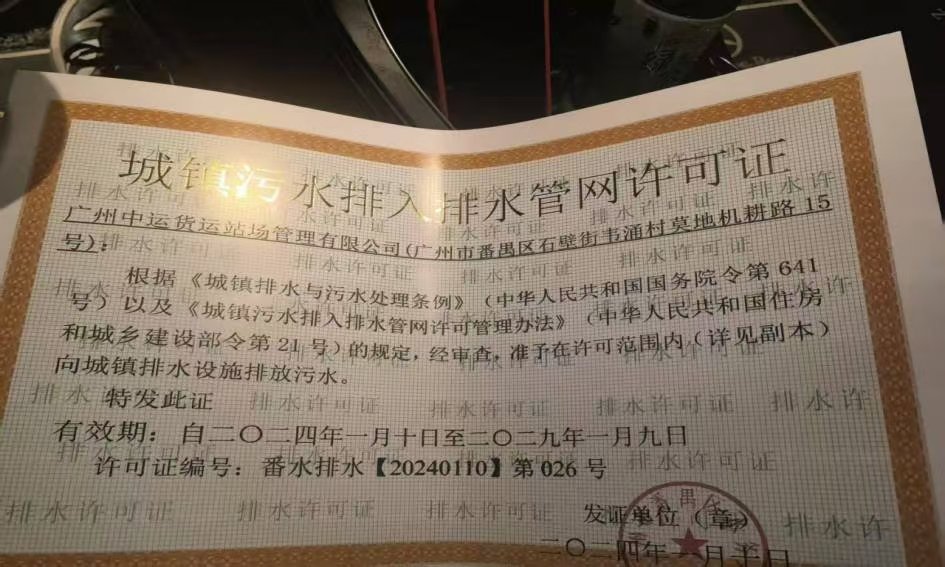 城镇污水排入排水管网许可证
广州中运货运站场管理有限公司(广州市番禺区石壁街韦涌村莫地机耕路 15
号)：
根据《城镇排水与污水处理条例》（中华人民共和国国务院令第 641
号）以及《城镇污水排入排水管网许可管理办法》（中华人民共和国住房
和城乡建设部令第 21 号）的规定，经审查，准予在许可范围内（详见副本）
向城镇排水设施排放污水。
特发此证
有效期：自二〇二四年一月十日至二〇二九年一月九日
许可证编号：番水排水【20240110】第 026 号
发证单位（章）
二〇二四年一月十日
排水许可证